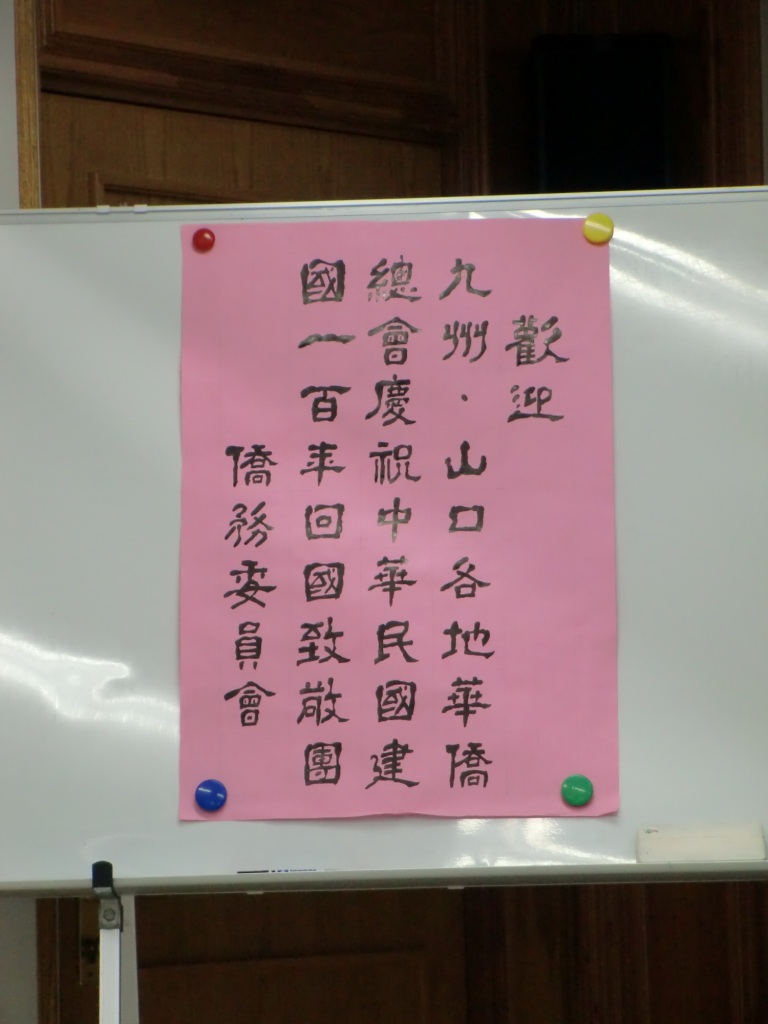 歡迎
九州·山口各地華僑
總會慶祝中華民國建
國一百年回國致敬團
僑務委員會